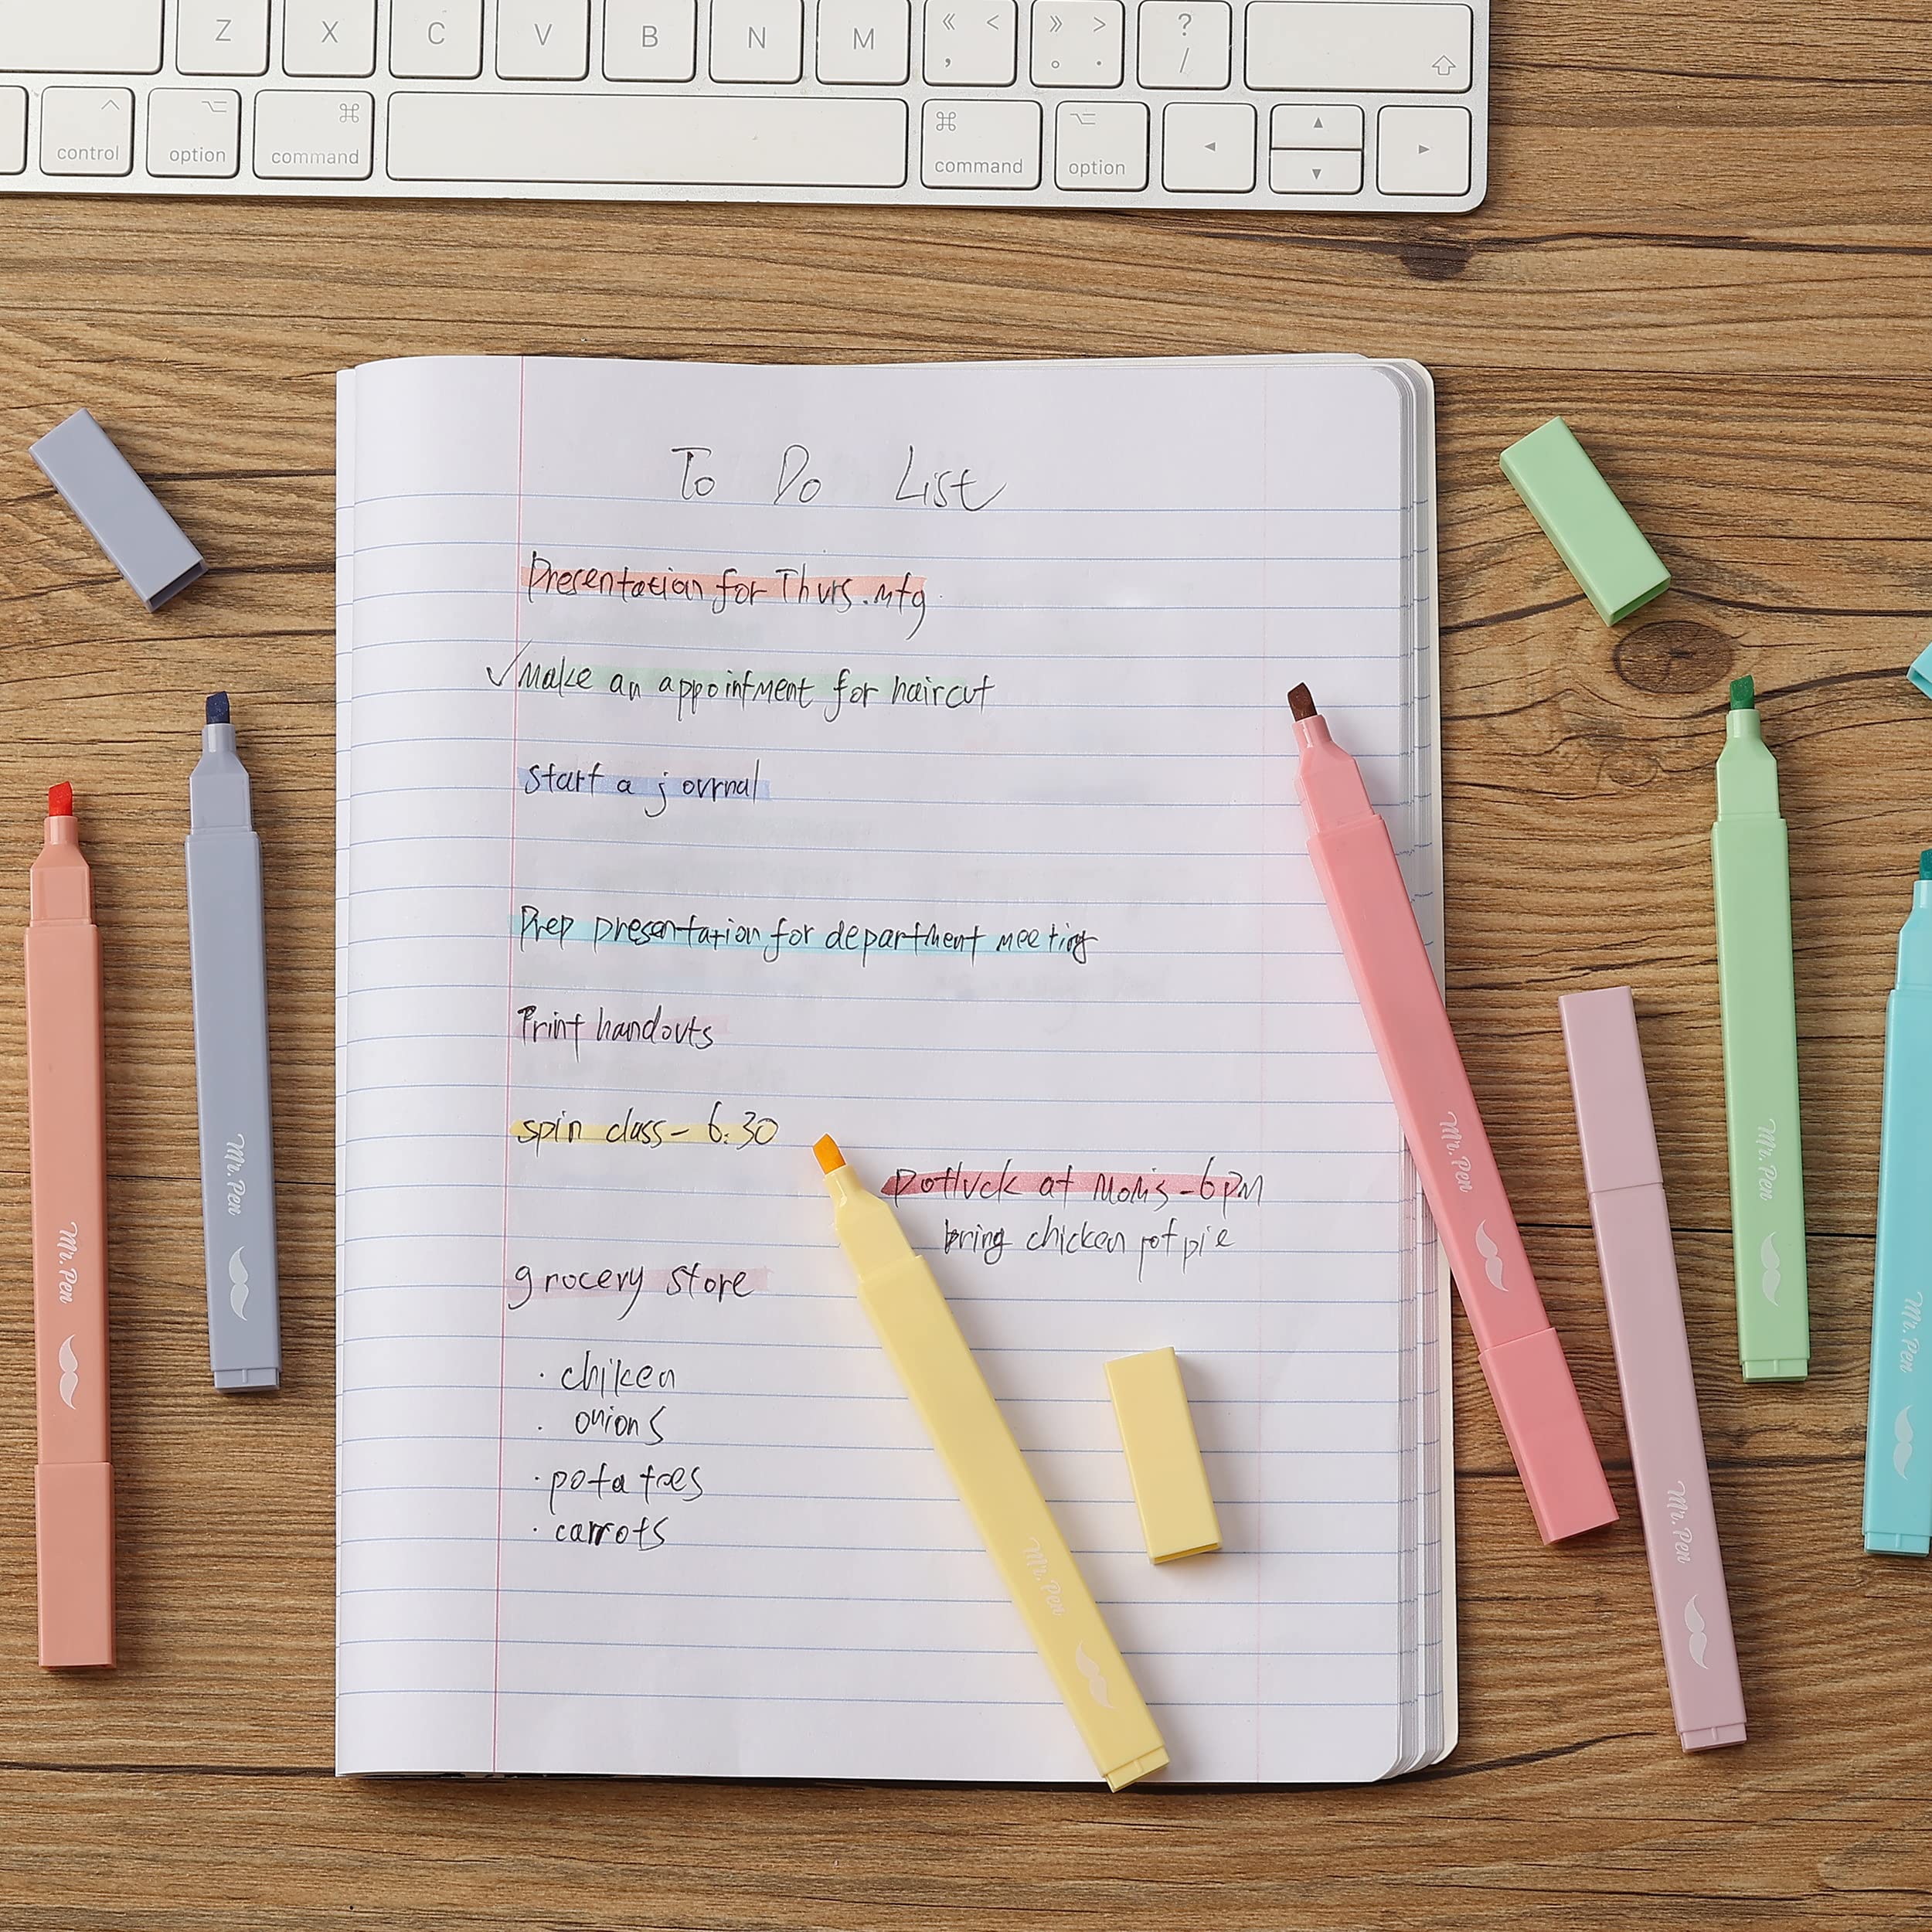 Z X C V B N M « < , » > 。 . ? /
control option command command option
To Do List
Presentation for Thurs. mtg
✓ Make an appointment for haircut
start a journal
Prep presentation for department meeting
Print handouts
spin class - 6:30
Potluck at Mom's - 6pm
bring chicken pot pie
grocery store
· chiken
· onions
· potatoes
· carrots
Mr. Pen
Mr. Pen
Mr. Pen
Mr. Pen
Mr. Pen
Mr. Pen
Mr. Pen